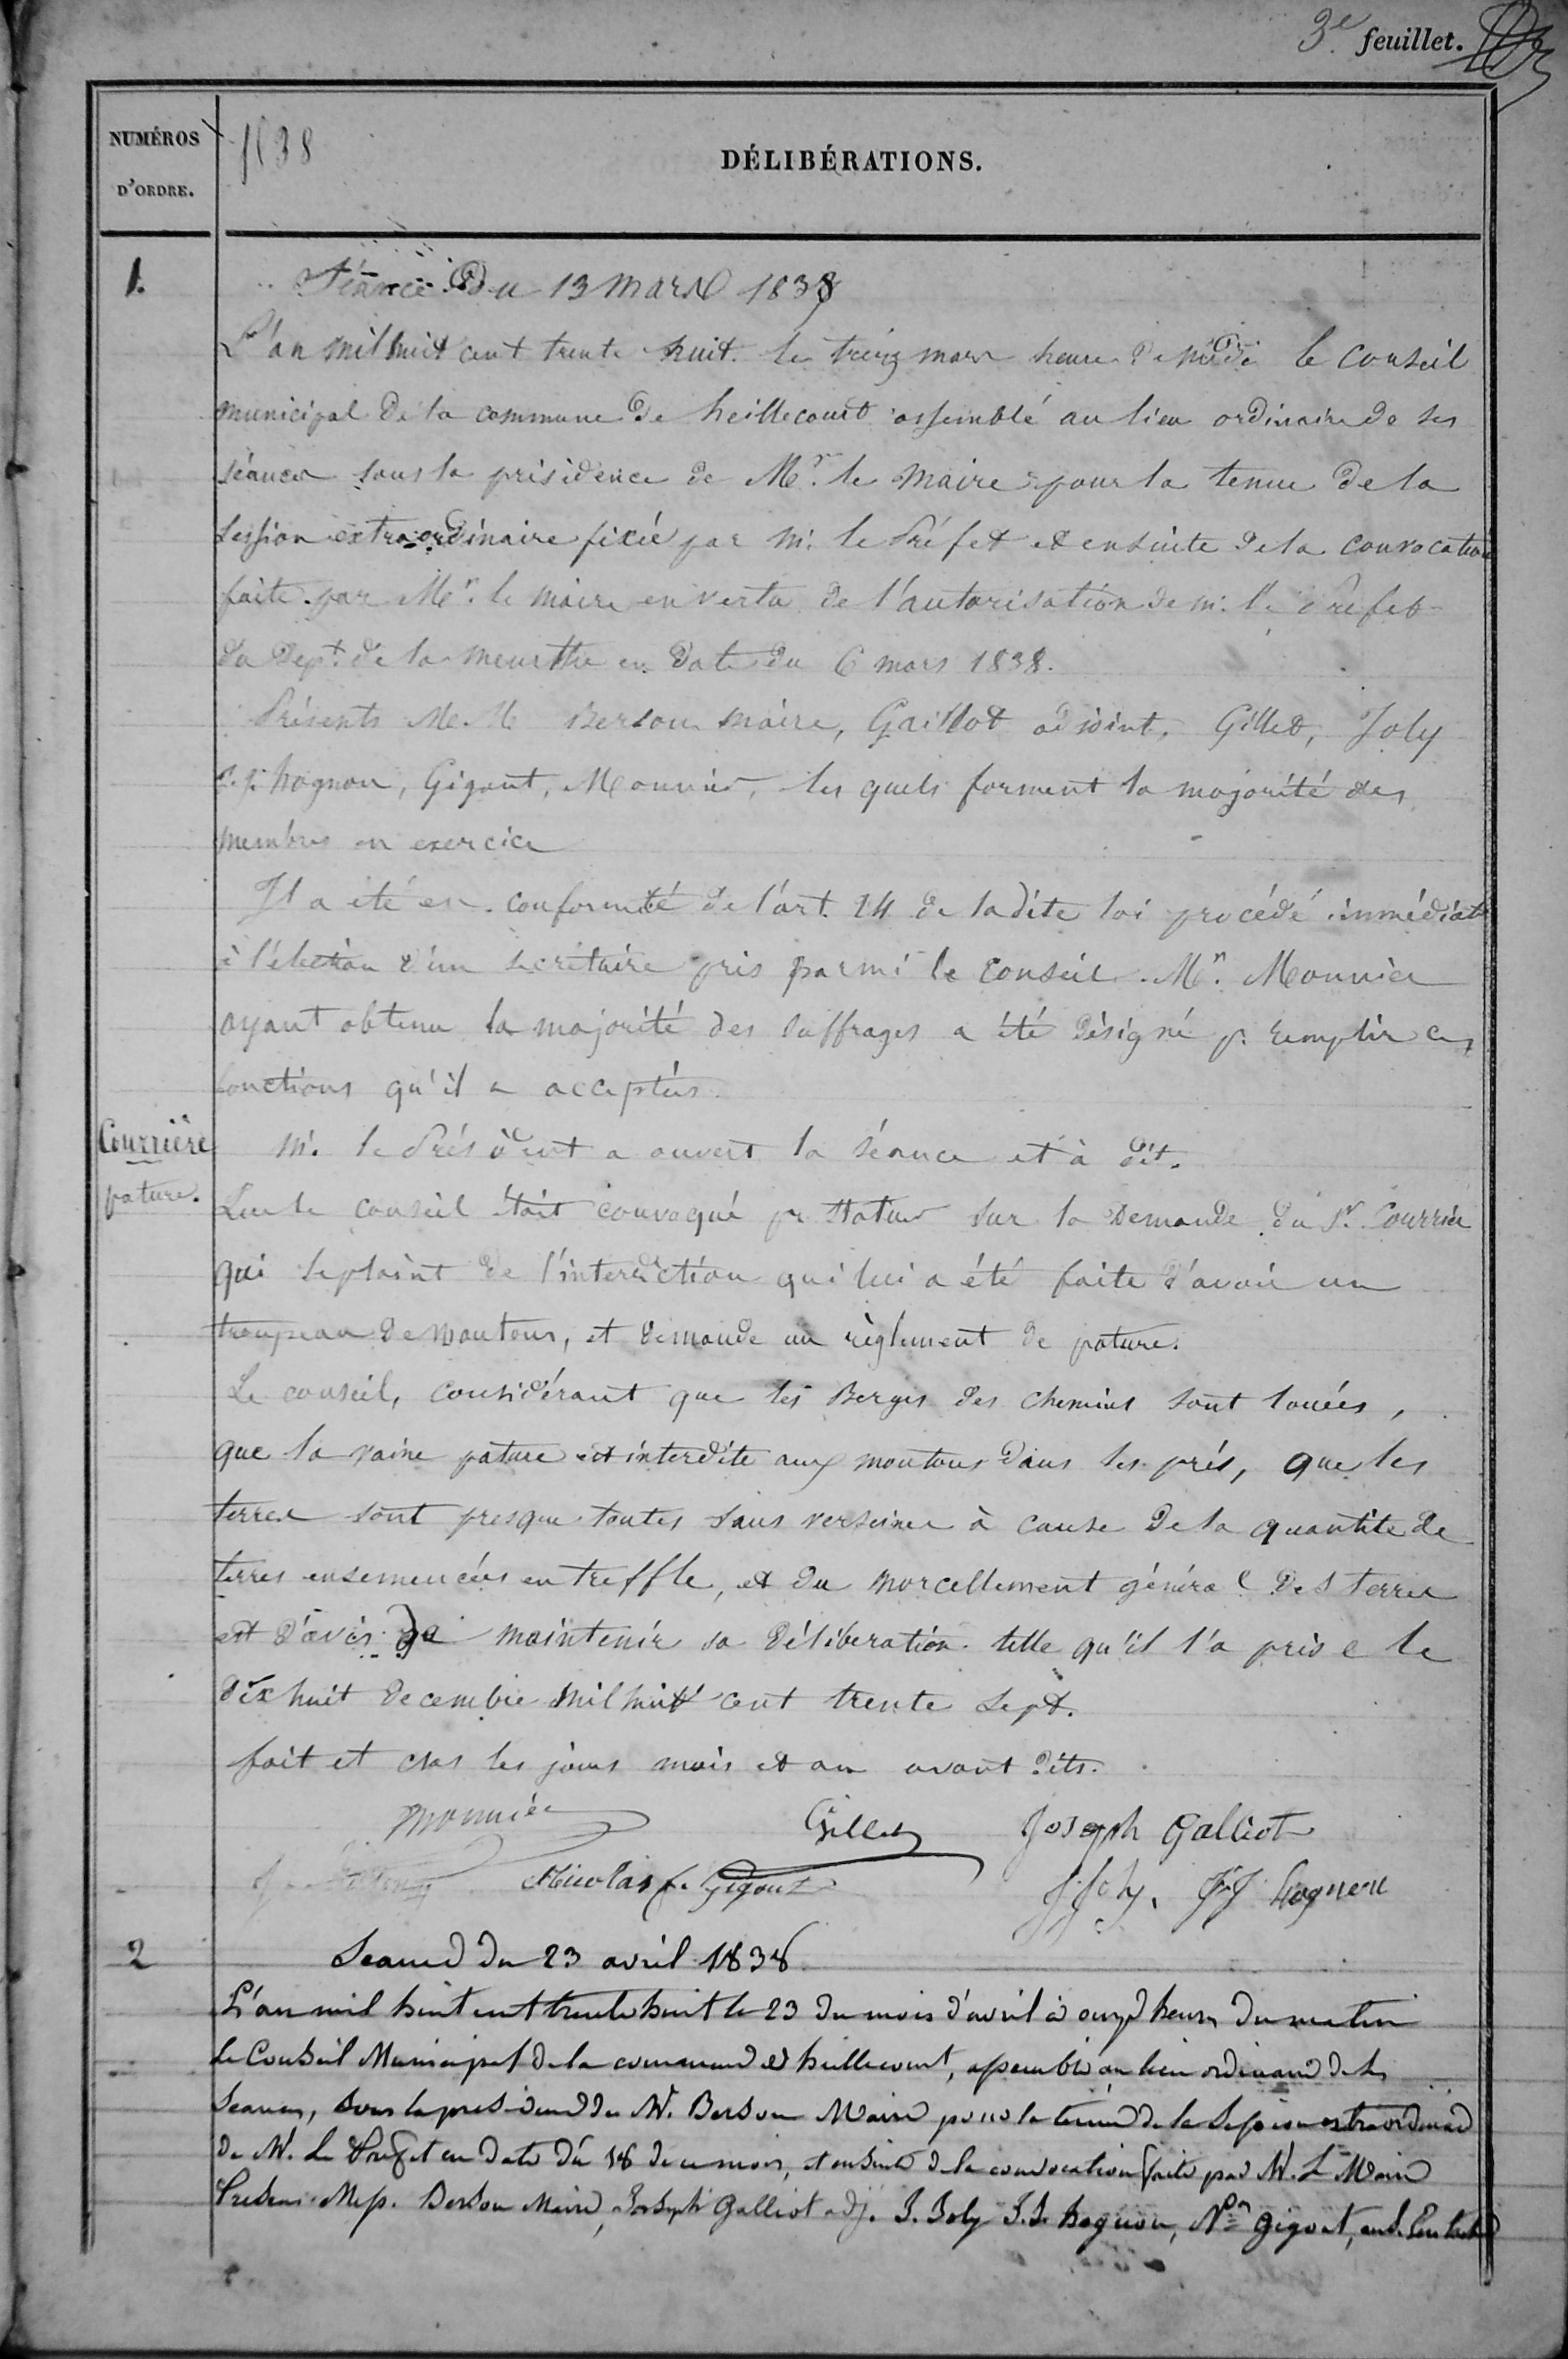 3e feuillet.
NUMÉROS
D'ORDRE.
1838
DÉLIBÉRATIONS.
1. Séance Du 13 mars 1838
L'an mil huit cent trente huit. le treize mars heure de midi le conseil
municipal de la commune de heillecourt assemblé au lieu ordinaire de ses
séances sous la présidence de Mr. le maire pour la tenue de la
session extraordinaire fixée par m. le Préfet et ensuite de la convocation
faite par Mr. le maire en vertu de l'autorisation de m. le Prefet
du Dept. de la meurthe en date du 6 mars 1838.
Présents M.M. Berson maire, Gaillot adjoint, Gillet, Joly
hognon, Gigout, Mounier, les quels forment la majorité des
membres en exercice
Il a été en conformité de l'art. 24 de la dite loi procédé immédiatt
à l'élection d'un secrétaire pris parmi le conseil. Mr. Mounier
ayant obtenu la majorité des suffrages a été désigné pr. remplir ces
fonctions qu'il a acceptées.
Courrière
pature.
m. le Président a ouvert la séance et à dit.
Que le conseil était convoqué pr. statuer sur la demande du Sr. Courrier
qui se plaint de l'interdiction qui lui a été faite d'avoir un
troupeau de moutons, et demande un règlement de pature.
Le conseil, considérant que les Berges des chemins sont louées,
que la vaine pature est interdite aux moutons dans les prés, que les
terres sont presque toutes sans verseines à cause de la quantité de
terres ensemencées en treffle, et du morcellement général des terres
est d'avis de maintenir sa déliberation telle qu'il l'a prise le
dix huit decembre mil huit cent trente sept.
fait et clos les jours mois et an avant dits.
Mounier Gillet Joseph Galliot
Nicolas f. Gigout J Joly. JJ hognon
2 Seance du 23 avril 1838
L'an mil huit cent trente huit le 23 du mois d'avril à onze heures du matin
le Conseil Municipal de la commune de heillecourt, assemblé au lieu ordinaire de ses
Seances, sous la presidence de M. Berson Maire pour la tenue de la Session extraordinaire
de M. Le Prefet en date du 18 de ce mois, et ensuite de la convocation faite par M. Le Maire
Presens Mess. Berson Maire, Joseph Galliot adj. J. Joly J.J. hognon, Nas Gigout,